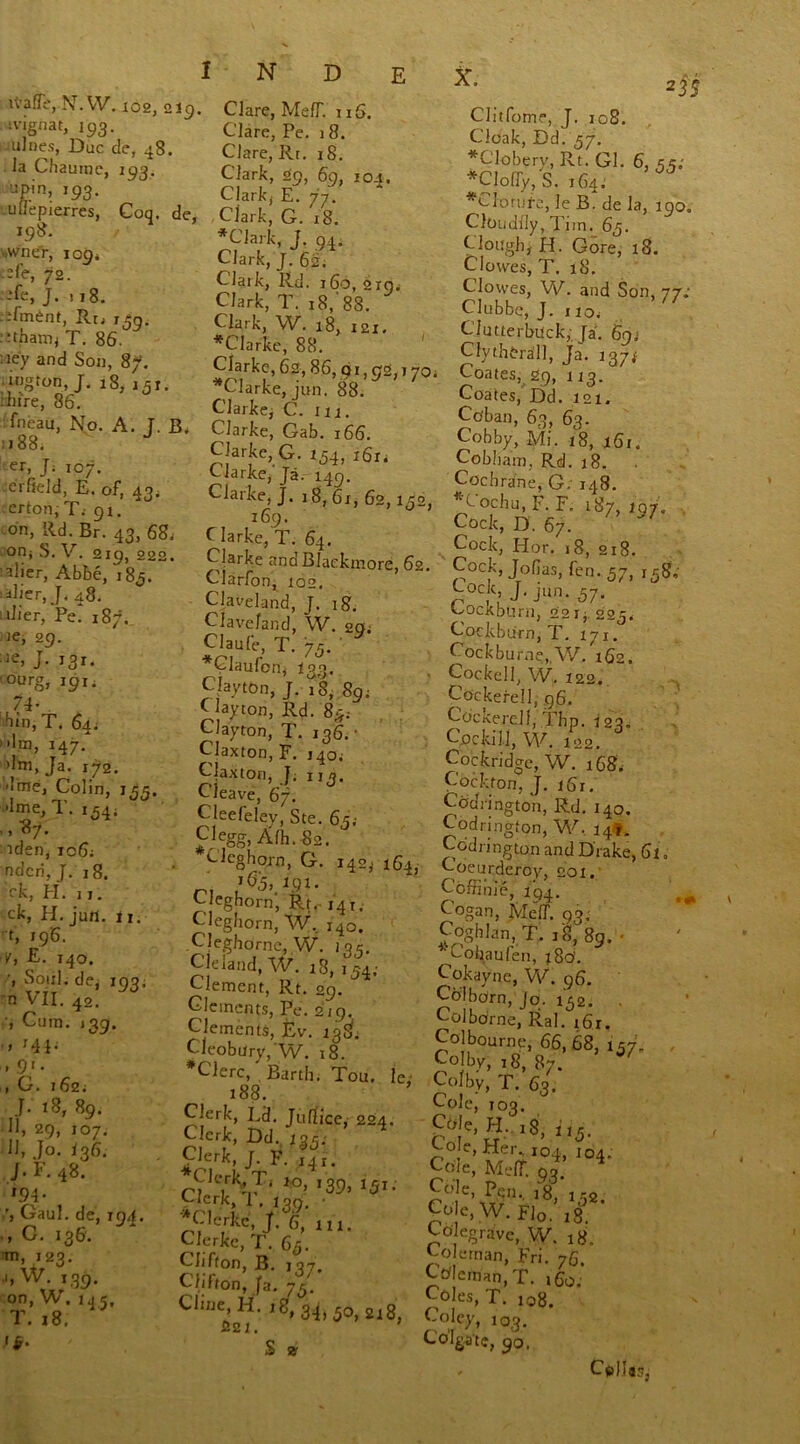 I N D E X. 235
Waſſe, N. W. 102, 219.
vignat, 193.
ulnes, Duc de, 48.
la Chaume, 193.
upin, 193.
uſſepierres, Coq. de,
198.
wner, 109.
eſe, 72.
eſe, J. 118.
eſment, Rt. 159.
etham, T. 86.
ney and Son, 87.
ington, J. 18, 151.
hire, 86.
fneau, No. A. J. B.
188.
er, J. 107.
erfield, E. of, 43.
erton, T. 91.
on, Rd. Br. 43, 68.
on, S. V. 219, 222.
alier, Abbé, 185.
alier, J. 48.
alier, Pe. 187.
ne, 29.
ne, J. 131.
ourg, 191.
74.
hin, T. 64.
olm, 147.
olm, Ja. 172.
olme, Colin, 155.
olme, T. 154.
87.
iden, 106.
nden, J. 18.
ck, H. 11.
ck, H. jun. 11.
t, 196.
y, E. 140.
, Soul. de, 193.
n VII. 42.
, Cum. 139.
, 144.
, 91.
, G. 162.
J. 18, 89.
ll, 29, 107.
ll, Jo. 136.
J. F. 48.
194.
, Gaul. de, 194.
, G. 136.
m, 123.
, W. 139.
on, W. 145.
T. 18.
Clare, Meſſ. 116.
Clare, Pe. 18.
Clare, Rt. 18.
Clark, 29, 69, 104.
Clark, E. 77.
Clark, G. 18.
*Clark, J. 94.
Clark, J. 62.
Clark, Rd. 160, 219.
Clark, T. 18, 88.
Clark, W. 18, 121.
*Clarke, 88.
Clarke, 62, 86, 91, 92, 170.
*Clarke, jun. 88.
Clarke, C. 111.
Clarke, Gab. 166.
Clarke, G. 154, 161.
Clarke, Ja. 149.
Clarke, J. 18, 61, 62, 152,
169.
Clarke, T. 64.
Clarke and Blackmore, 62.
Clarſon, 102.
Claveland, J. 18.
Claveland, W. 29.
Clauſe, T. 75.
*Clauſon, 133.
Clayton, J. 18, 89.
Clayton, Rd. 85.
Clayton, T. 136.
Claxton, F. 140.
Claxton, J. 113.
Cleave, 67.
Cleeſeley, Ste. 65.
Clegg, Aſh. 82.
*Cleghorn, G. 142, 164,
165, 191.
Cleghorn, Rt. 141.
Cleghorn, W. 140.
Cleghorne, W. 135.
Cleland, W. 18, 154.
Clement, Rt. 29.
Clements, Pe. 219.
Clements, Ev. 138.
Cleobury, W. 18.
*Clerc, Barth. Tou. le,
188.
Clerk, Ld. Juſtice, 224.
Clerk, Dd. 135.
Clerk, J. F. 141.
*Clerk, T. 10, 139, 151.
Clerk, T. 139.
*Clerke, J. 6, 111.
Clerke, T. 65.
Clifton, B. 137.
Clifton, Ja. 75.
Cline, H. 18, 34, 50, 218,
221.
S
Clitſome, J. 108.
Cloak, Dd. 57.
*Clobery, Rt. Gl. 6, 55.
*Cloſſy, S. 164.
*Cloture, le B. de la, 190.
Cloudſly, Tim. 65.
Clough, H. Gore, 18.
Clowes, T. 18.
Clowes, W. and Son, 77.
Clubbe, J. 110.
Clutterbuck, Ja. 69.
Clytherall, Ja. 137.
Coates, 29, 113.
Coates, Dd. 121.
Coban, 63, 63.
Cobby, Mi. 18, 161.
Cobham, Rd. 18.
Cochrane, G. 148.
*Cochu, F. F. 187, 197.
Cock, D. 67.
Cock, Hor. 18, 218.
Cock, Joſias, ſen. 57, 158.
Cock, J. jun. 57.
Cockburn, 221, 225.
Cockburn, T. 171.
Cockburne, W. 162.
Cockell, W. 122.
Cockerell, 96.
Cockerell, Thp. 123.
Cockill, W. 122.
Cockridge, W. 168.
Cockton, J. 161.
Codrington, Rd. 140.
Codrington, W. 141.
Codrington and Drake, 61.
Coeurderoy, 201.
Coffinié, 194.
Cogan, Meſſ. 93.
Coghlan, T. 18, 89.
*Cohauſen, 180.
Cokayne, W. 96.
Colborn, Jo. 152.
Colborne, Ral. 161.
Colbourne, 66, 68, 157.
Colby, 18, 87.
Colby, T. 63.
Cole, 103.
Cole, H. 18, 115.
Cole, Her. 104, 104.
Cole, Meſſ. 93.
Cole, Pen. 18, 152.
Cole, W. Flo. 18.
Colegrave, W. 18.
Coleman, Fri. 76.
Coleman, T. 160.
Coles, T. 108.
Coley, 103.
Colgate, 90.
Collas,